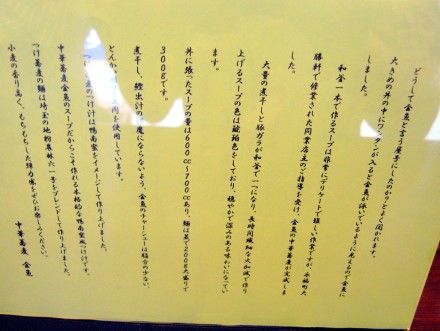 どうして金魚と言う屋号にしたのか?とよく聞かれます。
大きめの丼の中にワンタンが入ると金魚が泳いでいるように見えるので金魚に
しました。
和釜一本で作るスープは非常にデリケートで難しい作業ですが、永福町大
勝軒で修業された同業店主のご指導を受け、金魚の中華蕎麦が完成しま
した。
大量の煮干しと豚ガラが和釜で一つになり、長時間繊細な火加減で作り
上げるスープの色は琥珀色をしており、穏やかで深みのある味わいになってい
ます。
丼に張ったスープの量は600cc～700ccあり、麺は並で200g大盛りで
300gです。
煮干し、鰹出汁の邪魔にならないよう、金魚のチャーシューは脂台の少ない、
とんかつ用ロース肉を使用しています。
つけ蕎麦のつけ汁は鴨南蛮をイメージして作り上げました。
中華蕎麦金魚のスープだからこそ作れる本格的な鴨南蛮風つけ汁です。
つけ蕎麦の麺は埼玉の地粉農林六一号をブレンドして作り上げました。
小麦の香り高く、もちもちした弾力感をぜひお楽しみください。
中華蕎麦 金魚